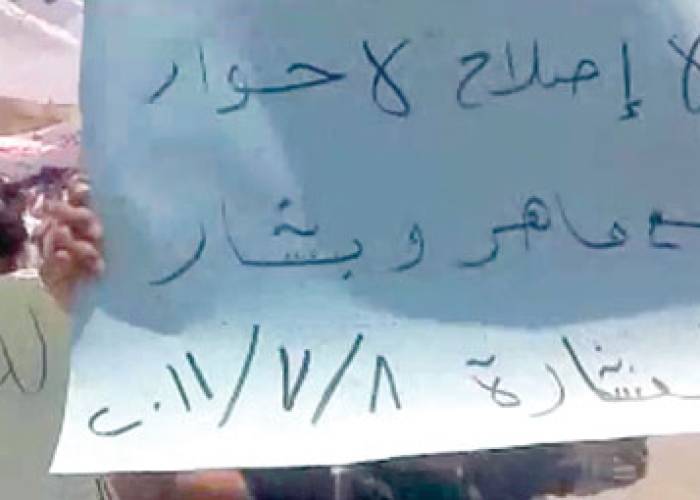 لا إصلاح لا حوار
مع ماهر و بشار
٨/٧/٢٠١١